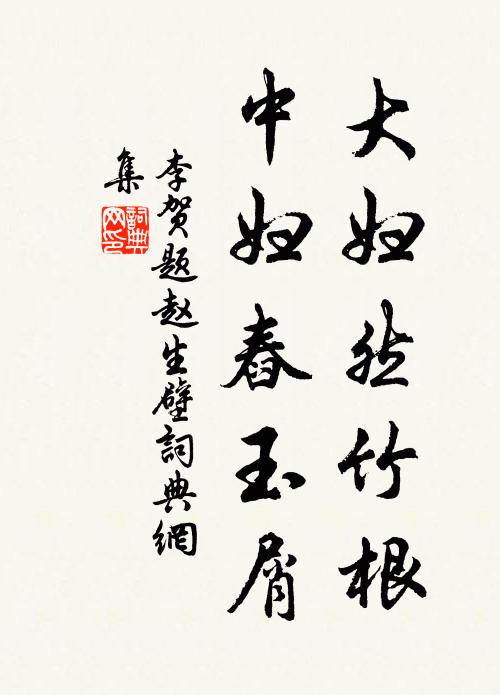 大妇然竹根
中妇舂玉屑
李贺题赵生壁詞典網
集
詞典网印